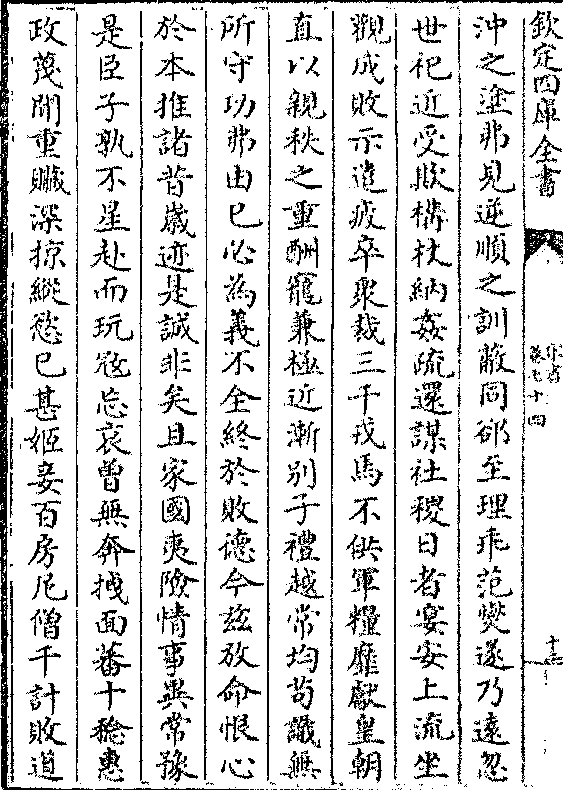 欽定四庫全書
宋書
卷七十四
十三
沖之塗弗見逆順之訓蔽同郤至理乖范燮遂乃遠忽
世祀近受欺構杖納姦疏還謀社稷日者宴安上流坐
觀成敗示遣疲卒衆裁三千戎馬不供軍糧靡獻皇朝
直以親秩之重酬寵兼極近漸別子禮越常均苟識無
所守功弗由已必為義不全終於敗德今茲放命恨心
於本推諸昔嵗迹是誠非矣且家國夷險情事異常豫
是臣子孰不星赴而玩寇忘哀曽無奔拽面蕃十稔惠
政蔑聞重贓深掠縱慾已甚姬妾百房尼僧千計敗道